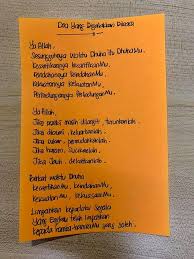 Doa Yang Digalakkan Dibaca
Ya Allah,
Sesungguhnya Waktu Dhuha itu DhuhaMu,
Kecantikannya KecantikanMu,
Keindahannya KeindahanMu,
Kekuatannya KekuatanMu,
Perlindungannya PerlindunganMu.
Ya Allah,
Jika masih dilangit, turunkanlah,
Jika dibumi, keluarkanlah,
Jika sukar, permudahkanlah,
Jika haram, sucikanlah,
Jika jauh, dekatkanlah.
Berkat waktu Dhuha
KecantikanMu, KeindahanMu,
KekuatanMu, KekuasaanMu,
Limpahkan kepadaku segala
Yang Engkau telah limpahkan
kepada hamba-hambaMu yang soleh.